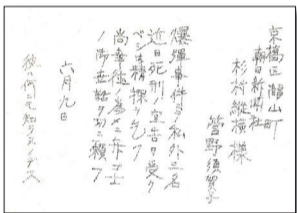 京橋区瀧山町
朝日新聞社
杉村縦横様
管野須賀子
爆弾事件ニテ私外三名
近日死刑ノ宣告ヲ受ク
ベシ御精探ヲ乞フ
尚幸徳ノ為メニ弁ゴ士
ノ御世話ヲ切ニ願フ
六月九日
彼ハ何ニモ知ラヌノデス